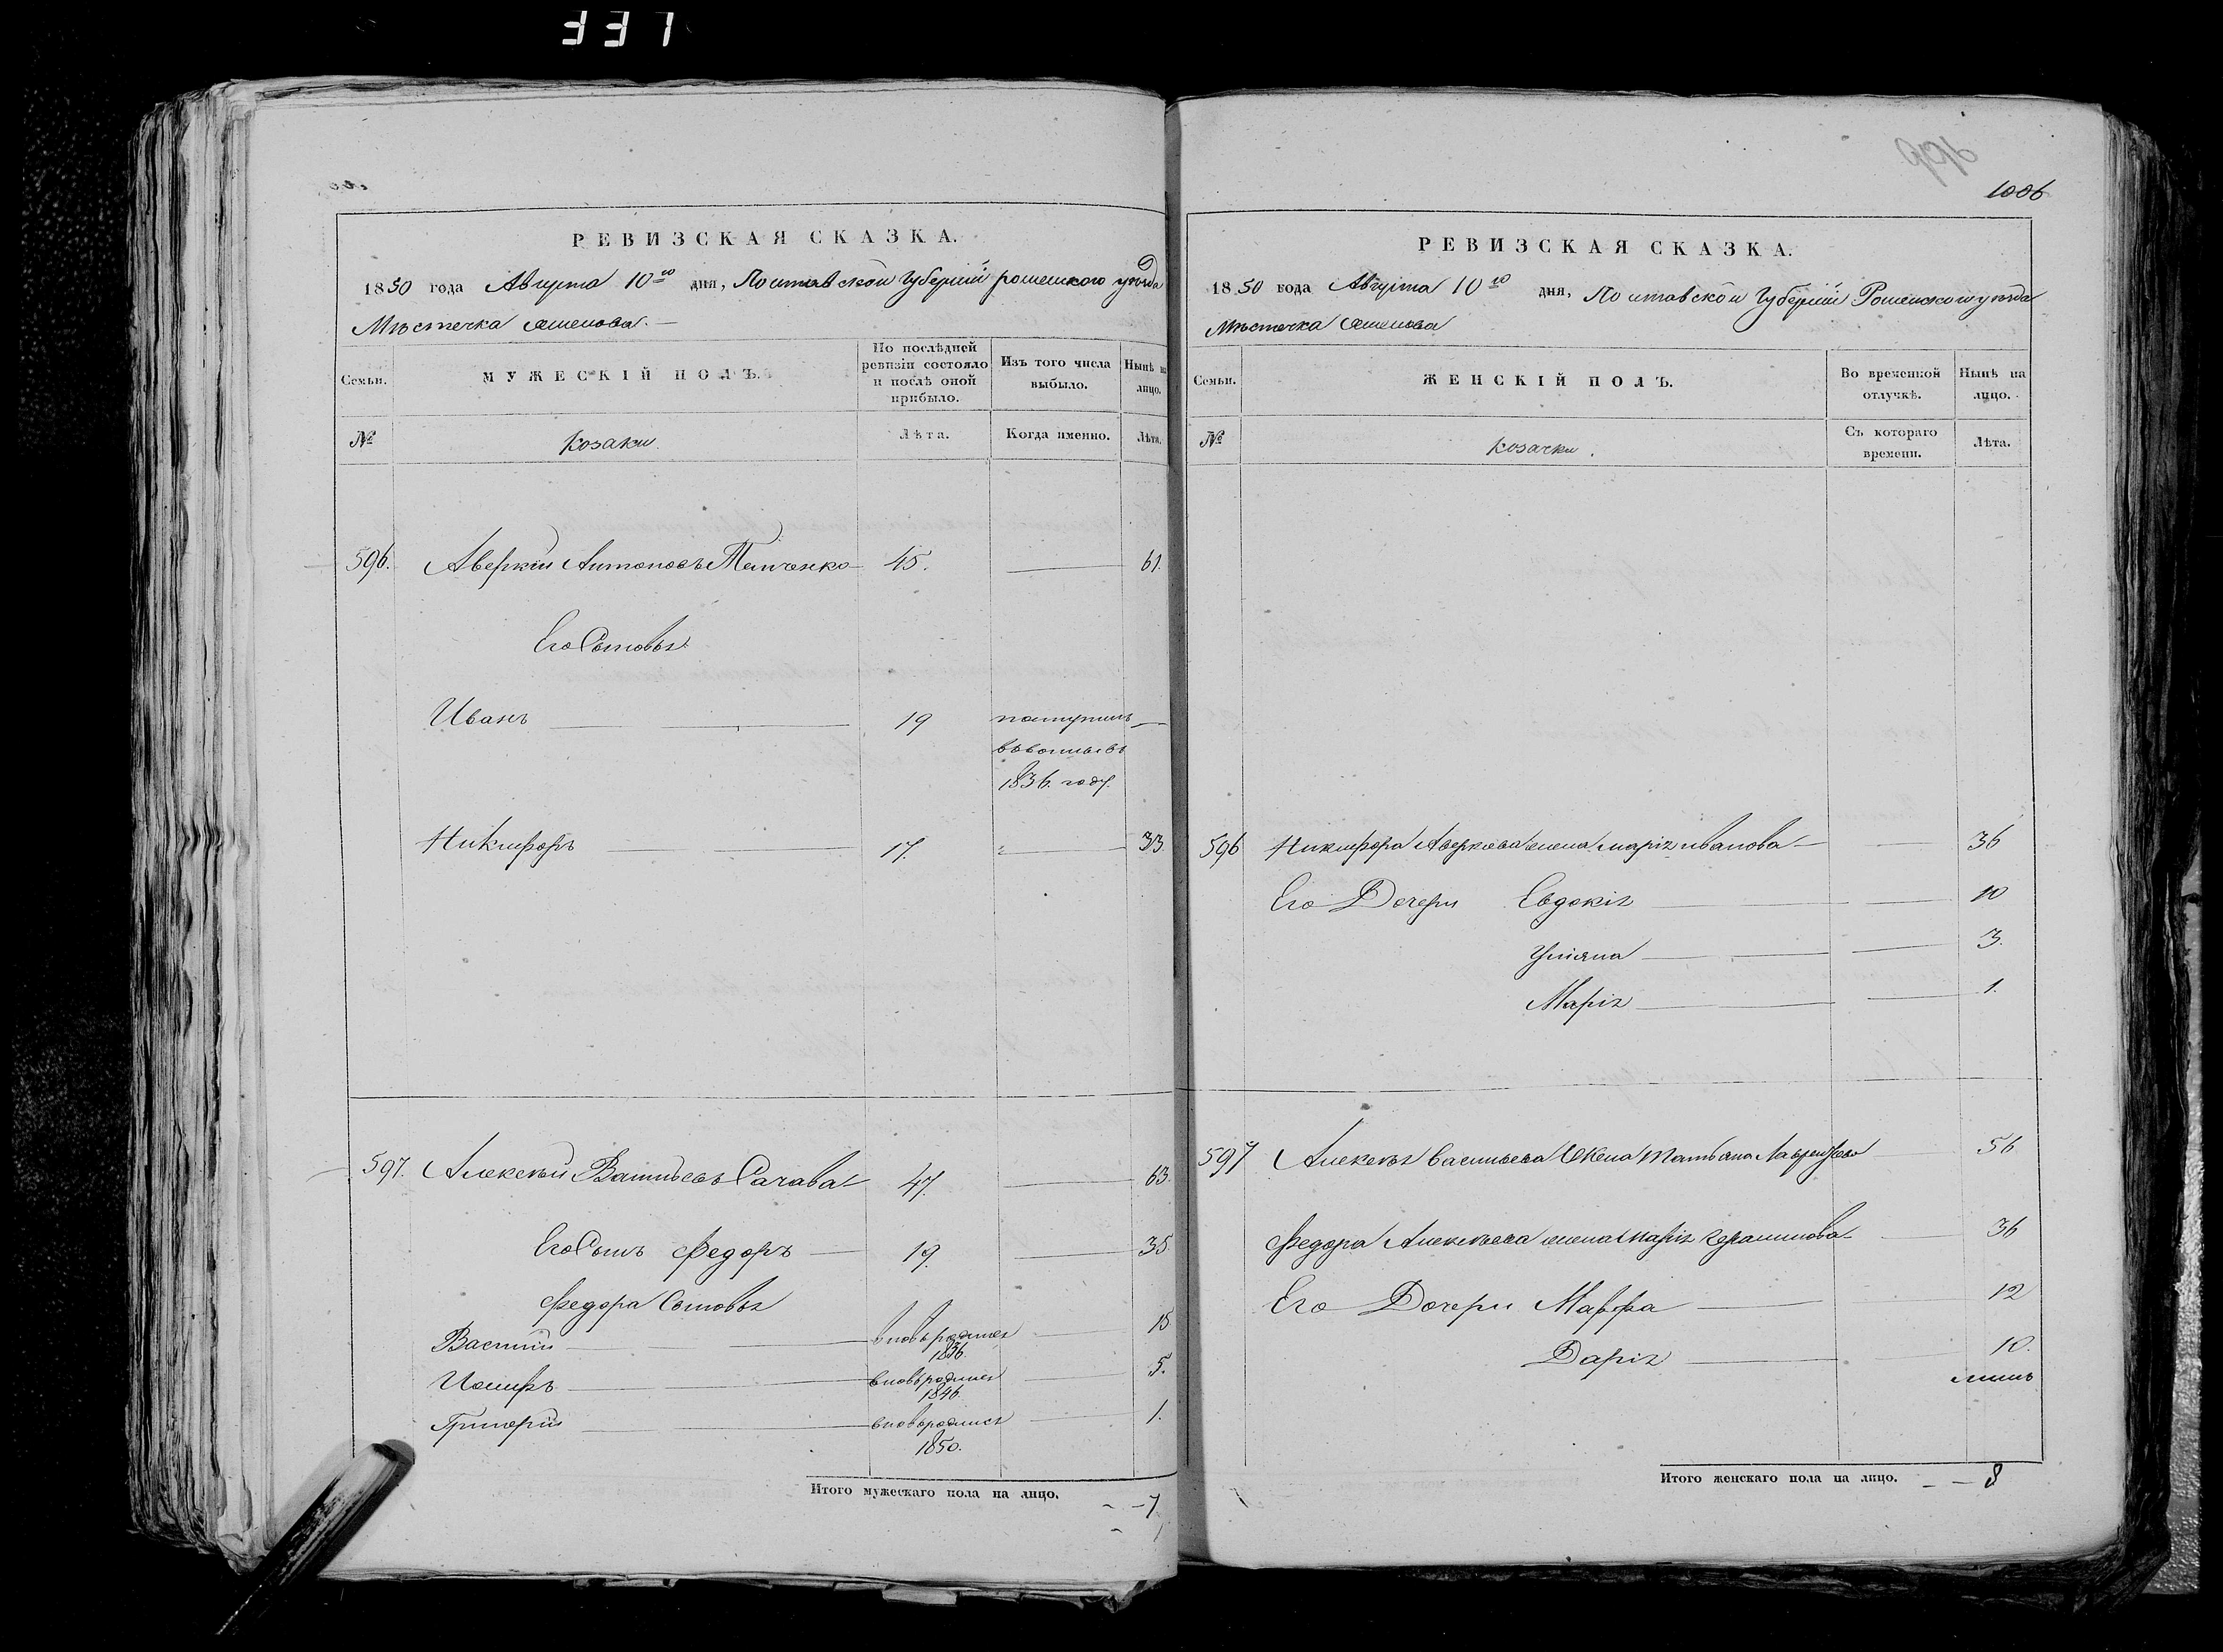 331
РЕВИЗСКАЯ СКАЗКА.
1850 года Августа 10го дня, Полтавской Губернии роменского уѣзда
Мѣстечка
Семьи.
МУЖЕСКІЙ ПОЛЪ.
По послѣдней ревизіи состояло и послѣ оной прибыло.
Изъ того числа выбыло.
Нынѣ на лицо.
№
козаки
Лѣта.
Когда именно.
Лѣта.
596. Аверкій Антоновъ 45. 61.
Его Сыновья
Иванъ 19 поступилъ
1836. году.
Никифоръ 17. 33
597. Алексѣй Васильевъ Сачава 47. 63.
Его Сынъ Федоръ 19. 35
Федора Сыновья
Василій вновьродился 15
1836
Иосифъ вновьродился 5.
1846.
Григорій вновьродился 1.
1850.
Итого мужескаго пола на лицо. 7
1006
РЕВИЗСКАЯ СКАЗКА.
1850 года Августа 10го дня, Полтавской Губерніи Роменского уѣзда
Мѣстечка
Семьи.
ЖЕНСКІЙ ПОЛЪ.
Во временной отлучкѣ.
Нынѣ на лицо.
№
козачки.
Съ котораго времени.
Лѣта.
596 Никифора Аверкіева жена Марія Иванова 36
Его Дочери Евдокія 10
Уліяна 3.
Марія 1.
597 Алексѣя Васильева Жена Татьяна 56
Федора Алексѣева жена Марія Герасимова 36
Его Дочери Марфа 12
Дарія 10.
Итого женскаго пола на лицо. 8